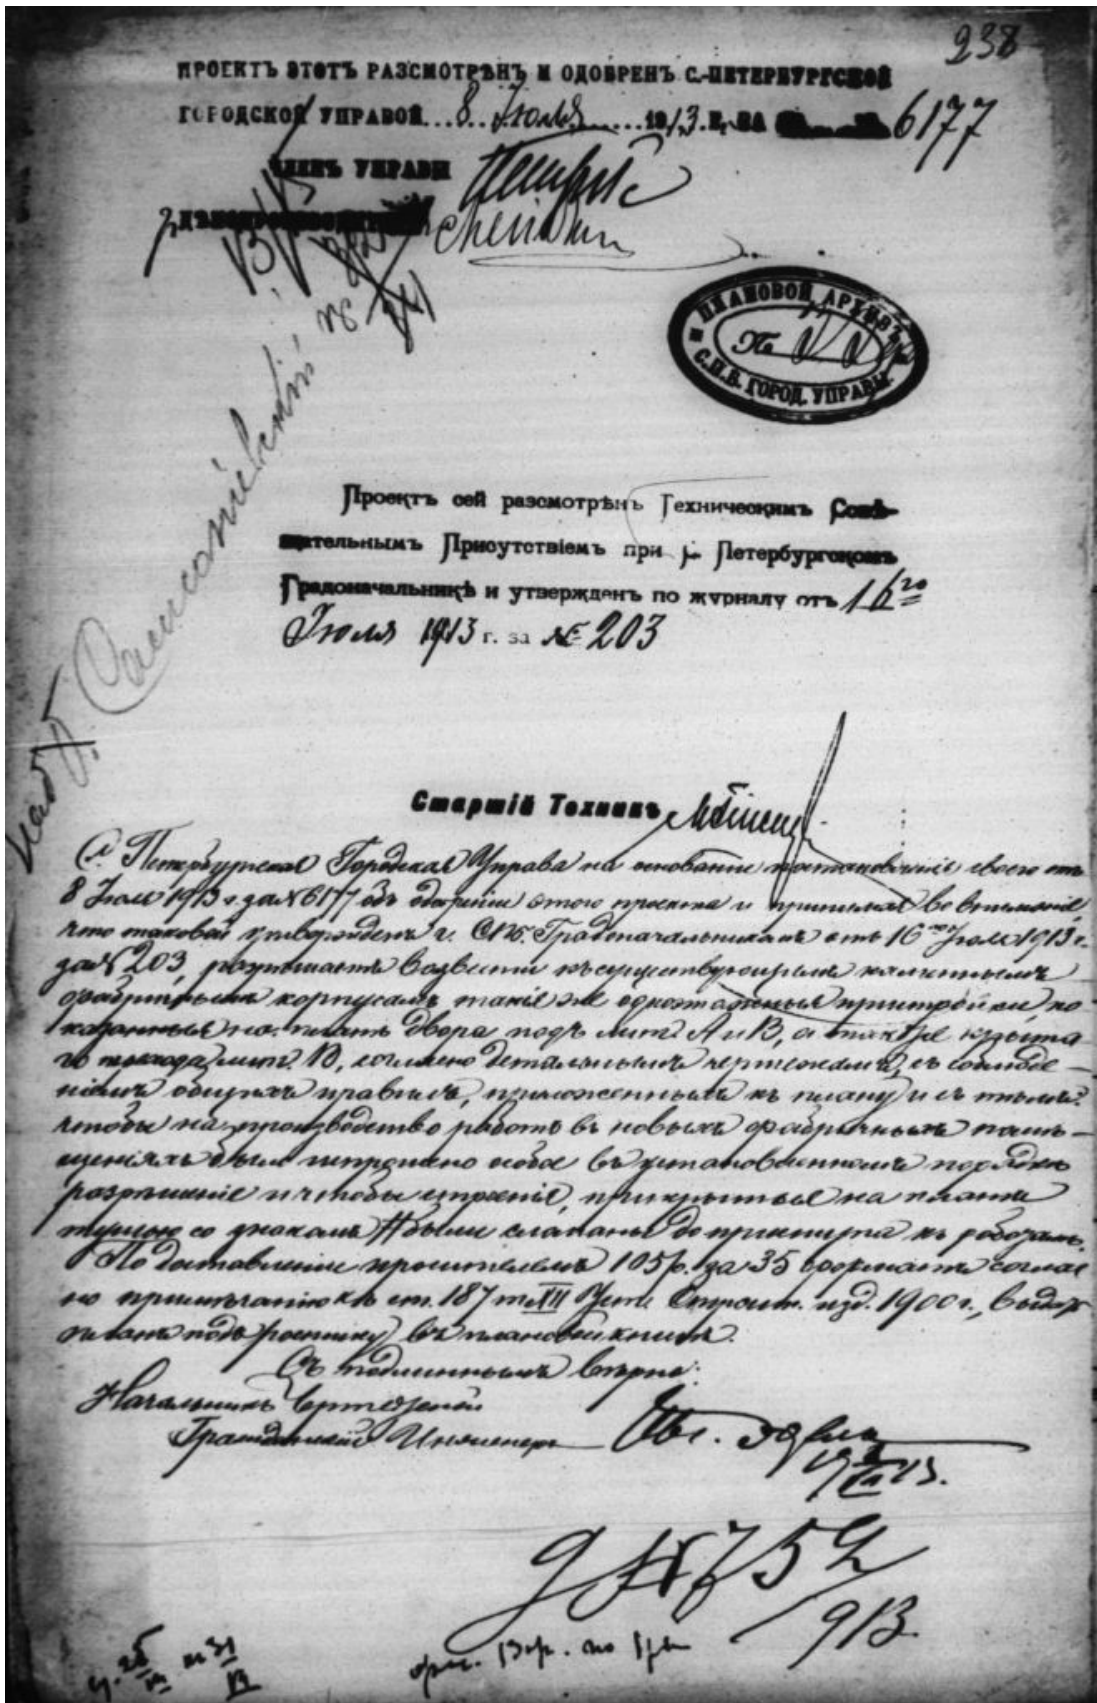 238
ПРОЕКТЪ ЭТОТЪ РАЗСМОТРѢНЪ И ОДОБРЕНЪ С.-ПЕТЕРБУРГСКОЙ
ГОРОДСКОЙ УПРАВОЙ... 8.. Іюля ... 1913. Г. ЗА 6177
ЧЛЕНЪ УПРАВЫ
ПЛАНОВОЙ АРХИВЪ
№
С.П.Б. ГОРОД. УПРАВЫ.
наб. Б. Сампсоніевскій
Проектъ сей разсмотрѣнъ Техническимъ Совѣ-
щательнымъ Присутствіемъ при г. Петербургскомъ
Градоначальникѣ и утвержденъ по журналу отъ 16го
Іюля 1913 г. за № 203
Старшій Техникъ
С. Петербургская Городская Управа на основаніи постановленія своего отъ
8 Іюля 1913 г. за № 6177 объ одобреніи этого проекта и принимая во вниманіе,
что таковой утвержденъ г. СПб. Градоначальникомъ отъ 16го Іюля 1913 г.
за № 203, разрѣшаетъ возвести къ существующимъ каменнымъ
фабричнымъ корпусамъ такія же одноэтажныя пристройки, по-
казанныя на планѣ двора подъ лит. А и В, а также
лит. В, согласно детальнымъ чертежамъ, съ соблюде-
ніемъ общихъ правилъ, приложенныхъ къ плану и съ тѣмъ,
чтобы на производство работъ въ новыхъ фабричныхъ помѣ-
щеніяхъ было испрошено особое въ установленномъ порядкѣ
разрѣшеніе и чтобы строенія, прикрытыя на планѣ
тушью со знакомъ # были сломаны до приступа къ работамъ.
По доставленіи просителемъ 105 р. за 35 форматовъ соглас-
но примѣчанію къ ст. 187 т. XII Уст. Строит. изд. 1900 г., выдать
планъ подъ росписку въ плановой книгѣ.
Съ подлиннымъ вѣрно:
Начальникъ Чертежной
Гражданскій Инженеръ
913